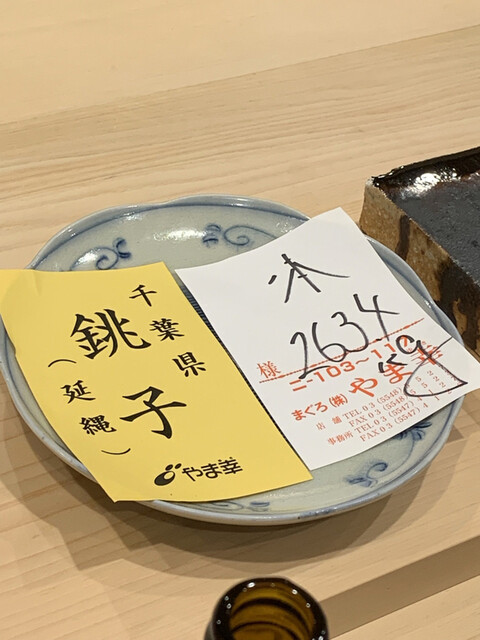 千葉県
銚子
（延縄）
やま幸
本
2634
様
ニ-103-110
まぐろ(株)やま幸
店舗 TEL 03 (5548)
FAX 03 (5548)
事務所 TEL 03 (5547)
FAX 03 (5547)